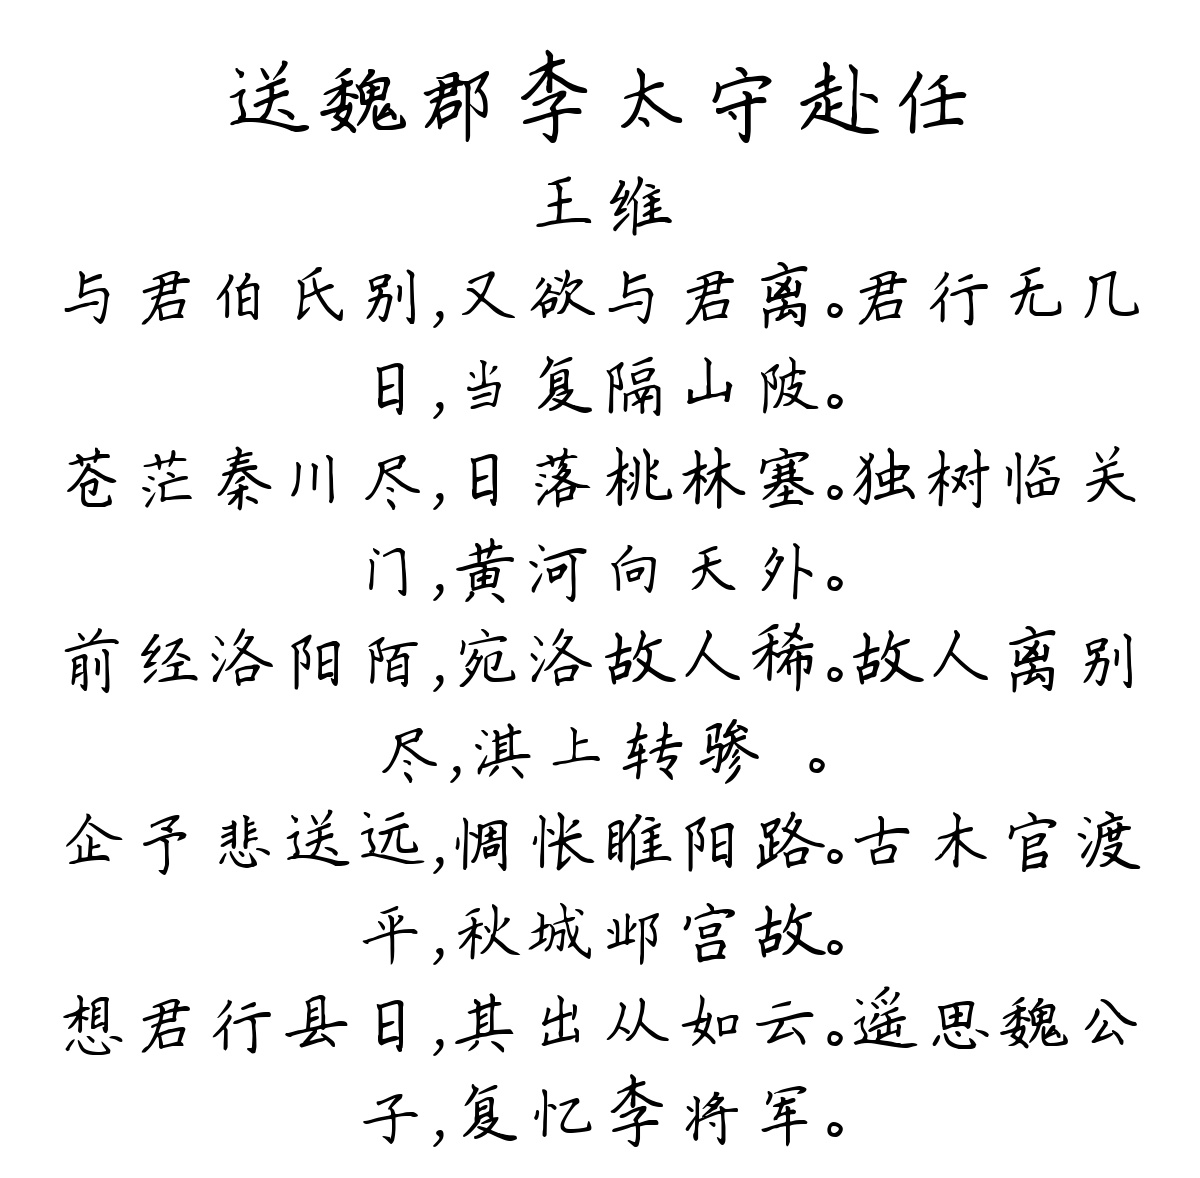 送魏郡李太守赴任
王维
与君伯氏别,又欲与君离。君行无几
日,当复隔山陂。
苍茫秦川尽,日落桃林塞。独树临关
门,黄河向天外。
前经洛阳陌,宛洛故人稀。故人离别
尽,淇上转骖 。
企予悲送远,惆怅睢阳路。古木官渡
平,秋城邺宫故。
想君行县日,其出从如云。遥思魏公
子,复忆李将军。